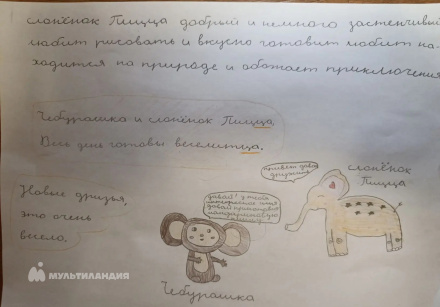 слонёнок Пицца добрый и немного застенчивый
любит рисовать и вкусно готовит любит на-
ходится на природе и обожает приключения
Чебурашка и слонёнок Пицца,
Весь день готовы веселитца.
Новые друзья,
это очень
весело.
привет давай дружить
давай! у тебя
давай приготовим
мандариновую
слонёнок
Пицца
Чебурашка
МУЛЬТИЛАНДИЯ